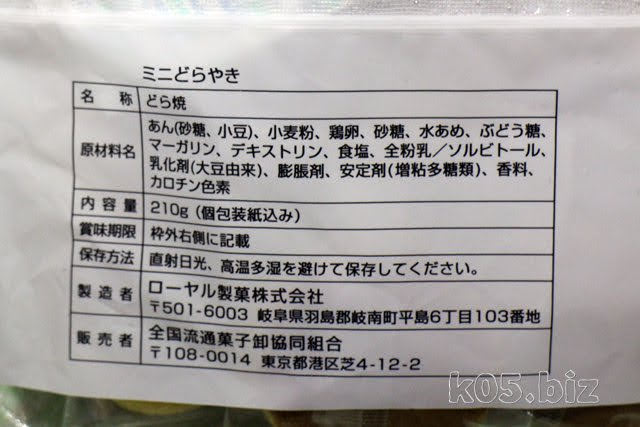 ミニどらやき
名称 どら焼
原材料名 あん(砂糖、小豆)、小麦粉、鶏卵、砂糖、水あめ、ぶどう糖、
マーガリン、デキストリン、食塩、全粉乳／ソルビトール、
乳化剤(大豆由来)、膨脹剤、安定剤(増粘多糖類)、香料、
カロチン色素
内容量 210g（個包装紙込み）
賞味期限 枠外右側に記載
保存方法 直射日光、高温多湿を避けて保存してください。
製造者 ローヤル製菓株式会社
〒501-6003 岐阜県羽島郡岐南町平島6丁目103番地
販売者 全国流通菓子卸協同組合
〒108-0014 東京都港区芝4-12-2
k05.biz